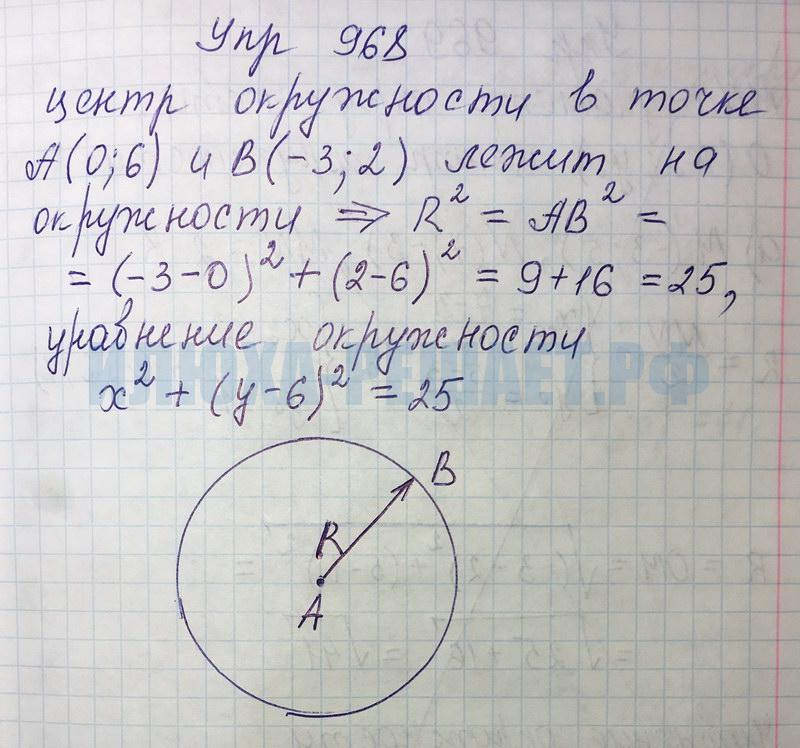 Упр 968
центр окружности в точке
A(0;6) и B(-3;2) лежит на
окружности ⇒ R² = AB² =
= (-3-0)² + (2-6)² = 9+16 = 25,
уравнение окружности
ИЛЮХА-РЕШАЕТ.РФ
x² + (y-6)² = 25
B
R
A